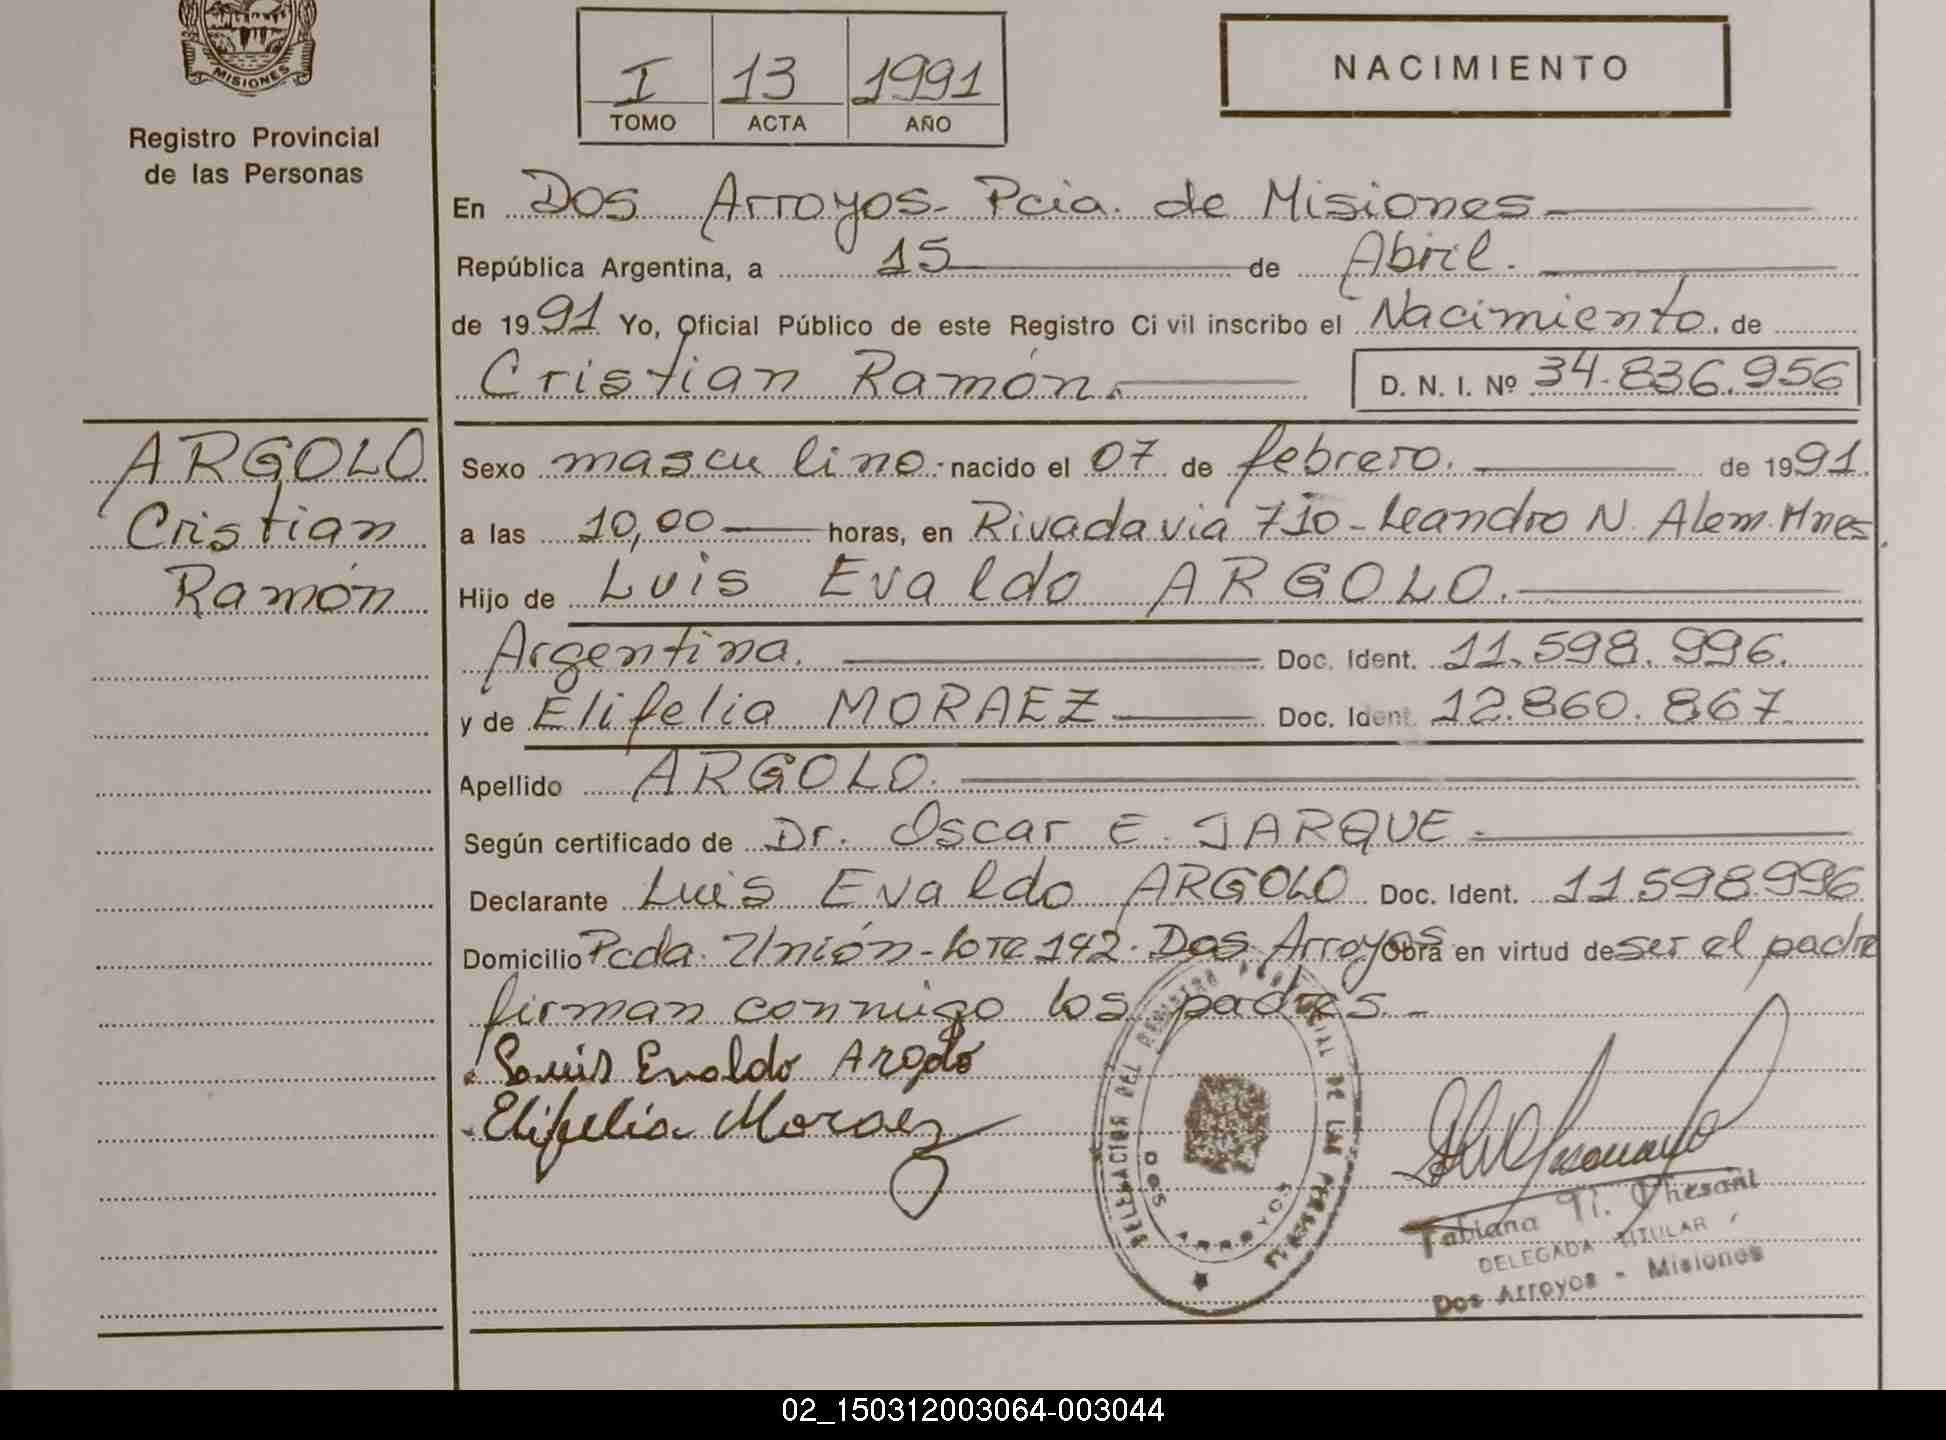 MISIONES
Registro Provincial
de las Personas
I 13 1991
TOMO ACTA AÑO
NACIMIENTO
En Dos Arroyos- Pcia. de Misiones
República Argentina, a 15 de Abril.
de 1991 Yo, Oficial Público de este Registro Ci vil inscribo el Nacimiento. de
Cristian Ramón. D. N. I. Nº 34.836.956
ARGOLO
Cristian
Ramón
Sexo masculino. nacido el 07 de febrero. de 1991.
a las 10,00 horas, en Rivadavia 710 - Leandro N. Alem. Mnes.
Hijo de Luis Evaldo ARGOLO.
Argentina. Doc. Ident. 11.598.996.
y de Elifelia MORAEZ Doc. Ident. 12.860.867
Apellido ARGOLO.
Según certificado de Dr. Oscar E. JARQUE -
Declarante Luis Evaldo ARGOLO Doc. Ident. 11.598.996
Domicilio Pcda. Unión - lote 142. Dos Arroyos Obra en virtud de ser el padre
firman conmigo los padres. -
Luuis Evaldo Argolo
Elifelia Moraez
DELEGACION DEL REGISTRO PROVINCIAL DE LAS PERSONAS
DOS ARROYOS
Fabiana
DELEGADA TITULAR
Dos Arroyos - Misiones
02_150312003064-003044